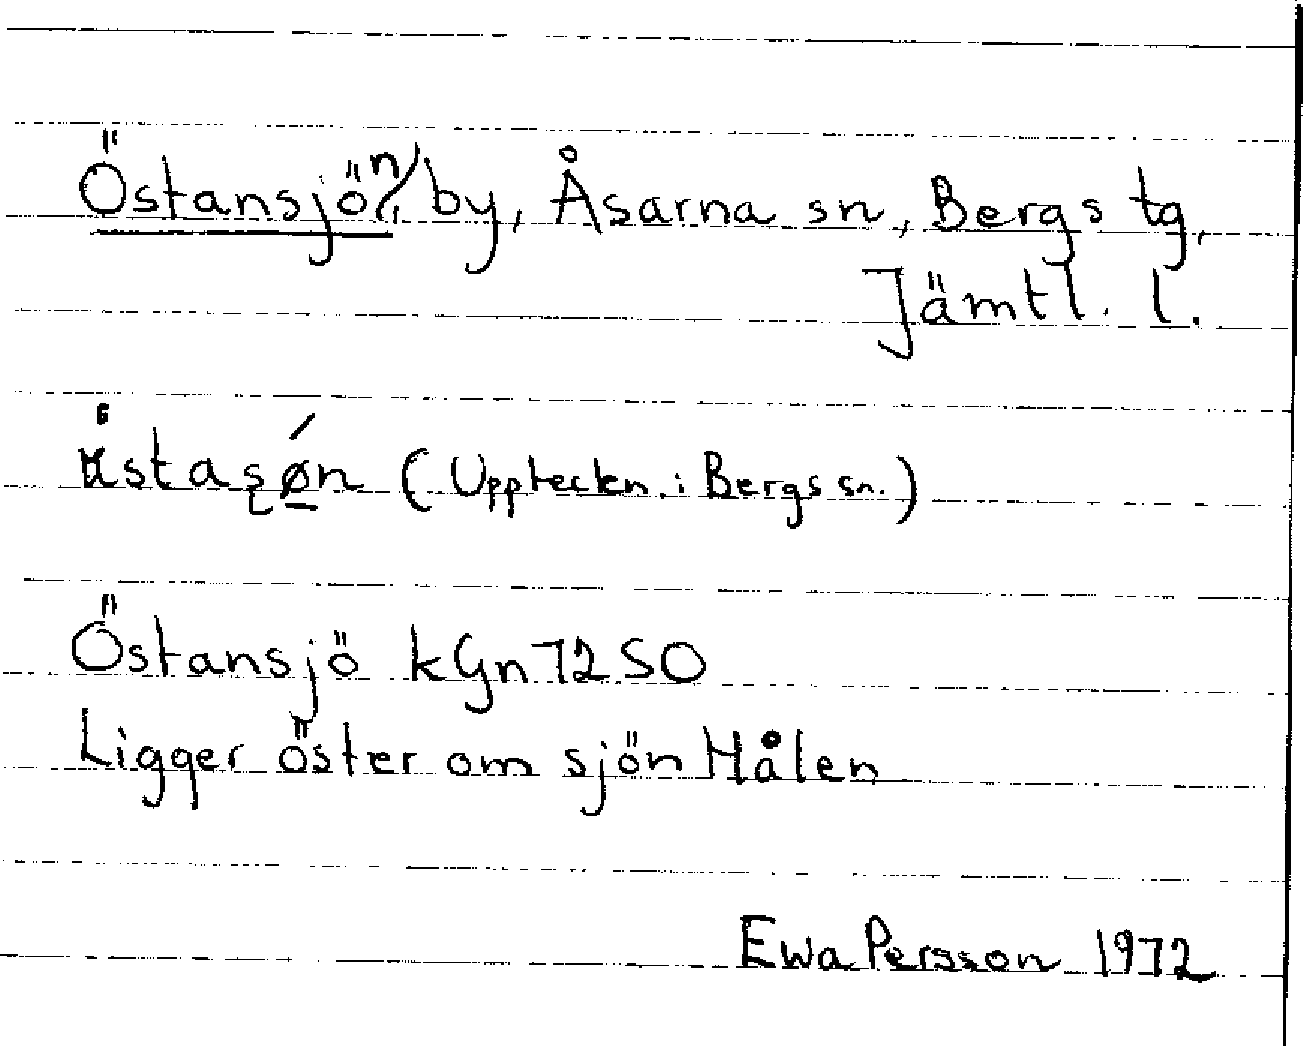 Östansjön, by, Åsarna sn, Bergs tg,
Jämtl. l.
(Uppteckn. i Bergs sn.)
Östansjö kGn 72 SO
Ligger öster om sjön Hålen
Ewa Persson 1972